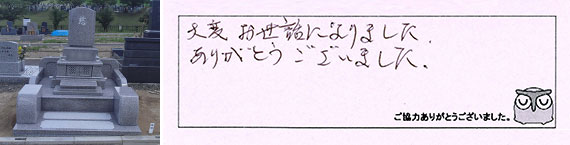 大変お世話になりました.
ありがとうございました。
ご協力ありがとうございました。